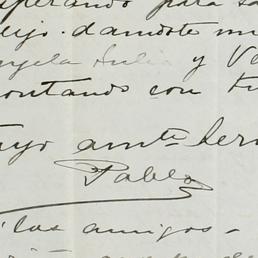 esperando para sa
dejo dandote mu
Angela Julia y Ve
contando con tu
Tuyo amte her
Pablo
los amigos -